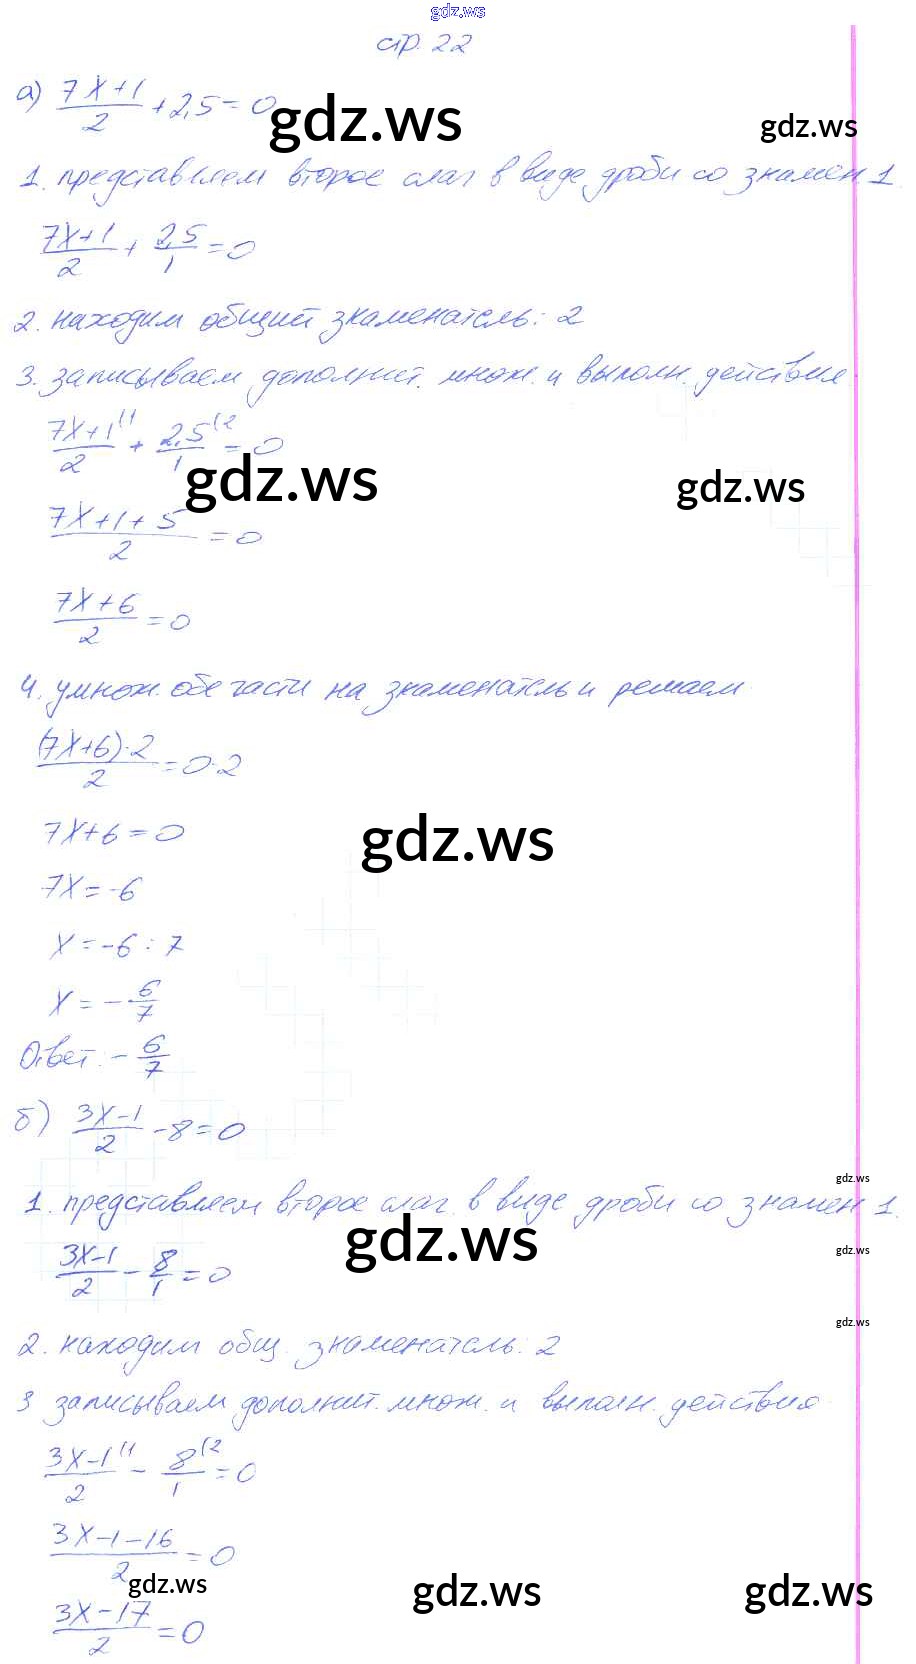 gdz.ws
стр. 22
а) (7x+1)/2 + 2,5 = 0
gdz.ws
gdz.ws
1. представляем второе слаг в виде дроби со знамен 1.
(7x+1)/2 + 2,5/1 = 0
2. находим общий знаменатель: 2
3. записываем дополнит. множ. и выполн. действия
(7x+1)/2 (1 + 2,5/1 (2 = 0
gdz.ws
gdz.ws
(7x+1+5)/2 = 0
(7x+6)/2 = 0
4. умнож. обе части на знаменатель и решаем
((7x+6)·2)/2 = 0·2
7x+6=0
gdz.ws
7x=-6
x=-6:7
x=-6/7
Ответ: -6/7
б) (3x-1)/2 - 8 = 0
gdz.ws
1. представляем второе слаг. в виде дроби со знамен 1.
gdz.ws
gdz.ws
(3x-1)/2 - 8/1 = 0
gdz.ws
2. находим общ. знаменатель: 2
3 записываем дополнит. множ. и выполн. действия
(3x-1)/2 (1 - 8/1 (2 = 0
(3x-1-16)/2 = 0
gdz.ws
gdz.ws
gdz.ws
(3x-17)/2 = 0